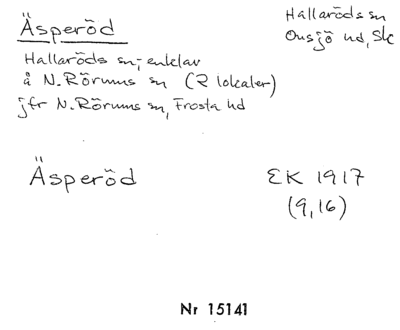 Äsperöd
Hallaröds sn
Onsjö hd, Sk
Hallaröds sn;- enklav
å N. Rörums sn (2 lokaler)
jfr N. Rörums sn, Frosta hd
Äsperöd
EK 1917
(9,16)
Nr 15141